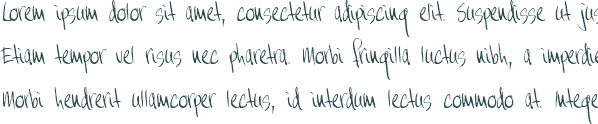 Lorem ipsum dolor sit amet, consectetur adipiscing elit. Suspendisse ut jus
Etiam tempor vel risus nec pharetra. Morbi fringilla luctus nibh, a imperdie
Morbi hendrerit ullamcorper lectus, id interdum lectus commodo at. Intege